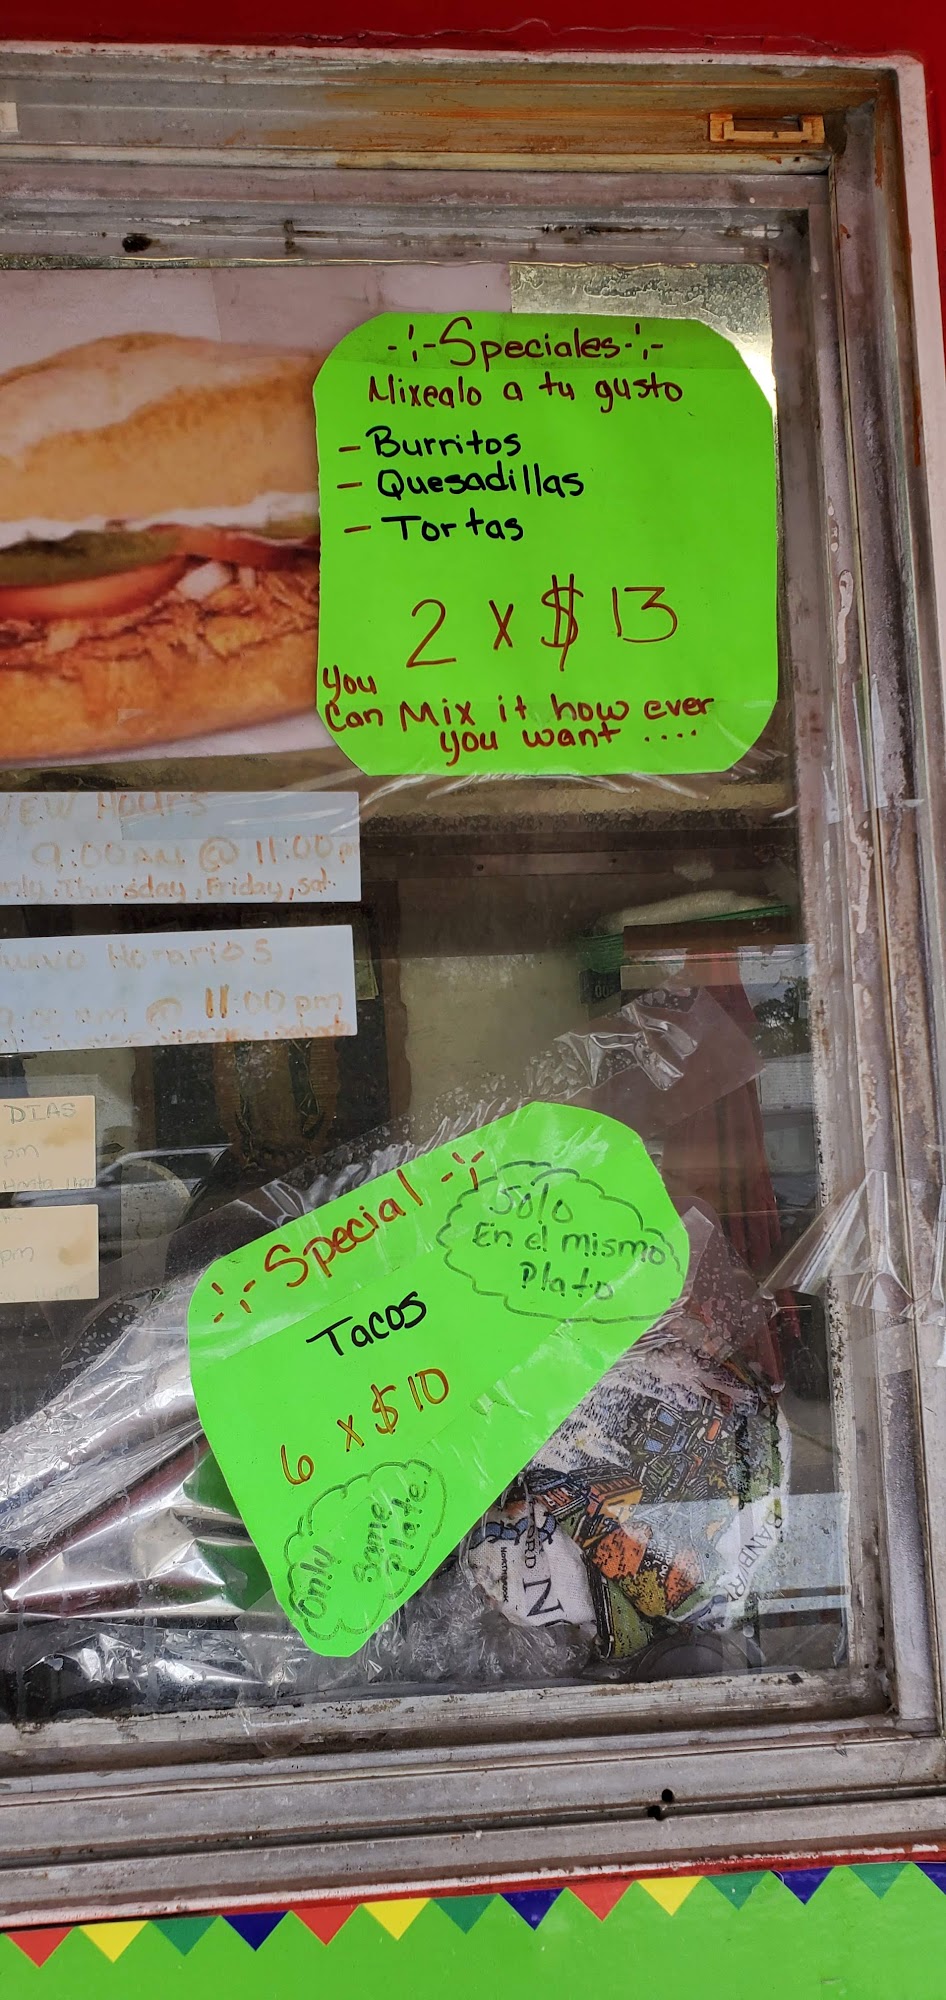 -¦-Speciales-¦-
Mixealo a tu gusto
- Burritos
- Quesadillas
- Tortas
2 x $13
You
Can Mix it how ever
you want ....
NEW Hours
9:00 AM @ 11:00 pm
only Thursday, Friday, sat.
Horarios
9:00 am @ 11:00 pm
DIAS
pm
pm
-¦-Special-¦-
Solo
En el mismo
Plato
Tacos
6 x $10
Only
same
plate.
BANBURY